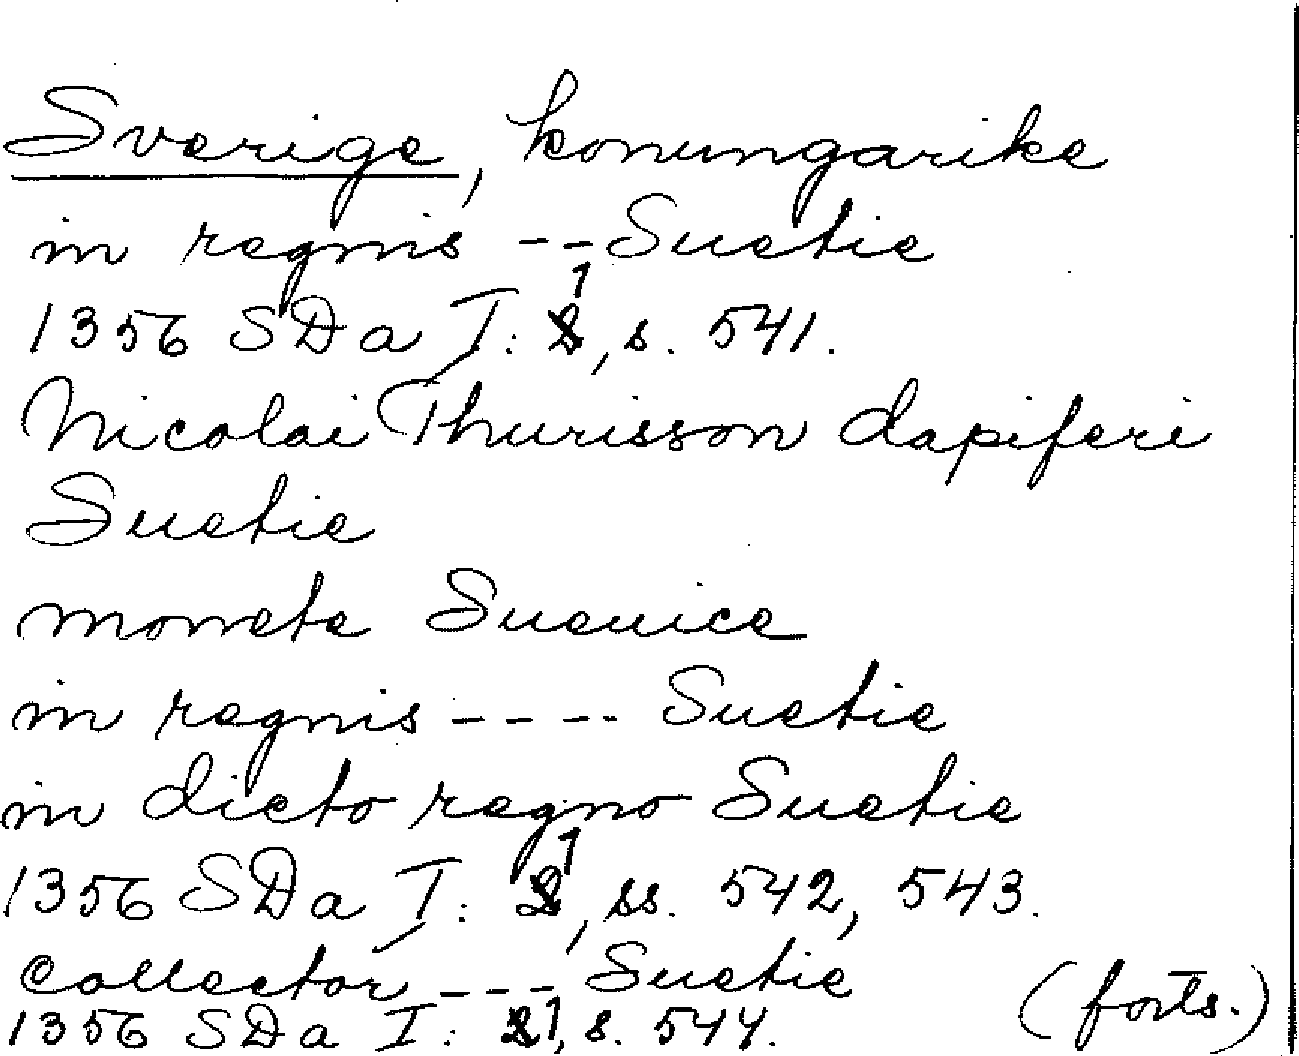 Sverige, konungarike
in regnis -- Suetie
1356 SDa I: 1, s. 541.
Nicolai Thurisson dapiferi
Suetie
moneta Sueuica
in regnis ---- Suetie
in dicto regno Suetie
1356 SDa I: 1, ss. 542, 543.
Collector --- Suetie
1356 SDa I: 1, s. 544. (forts.)